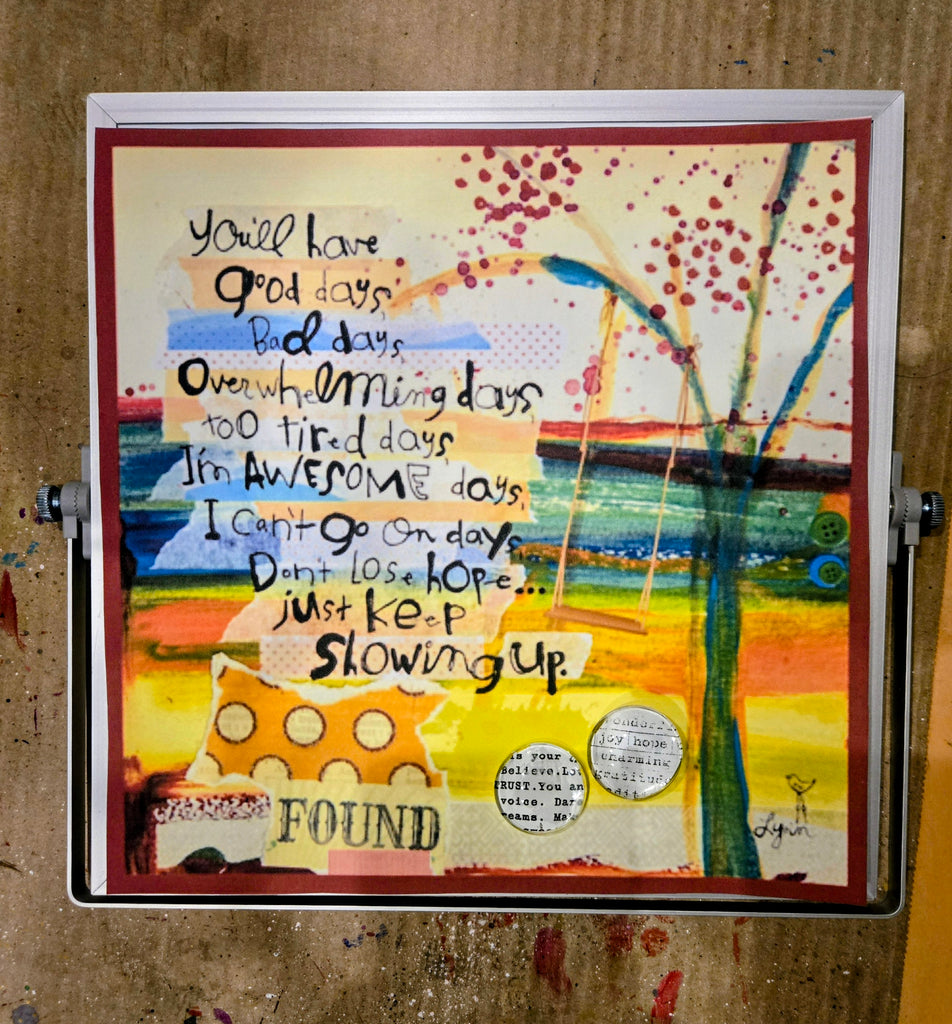 You'll have
good days,
Bad days,
Overwhelming days,
too tired days,
I'm AWESOME days,
I can't go on days,
Don't Lose hope...
just keep
Showing up.
FOUND
is your
Believe.
TRUST. You
voice.
joy hope
charming
Lynn